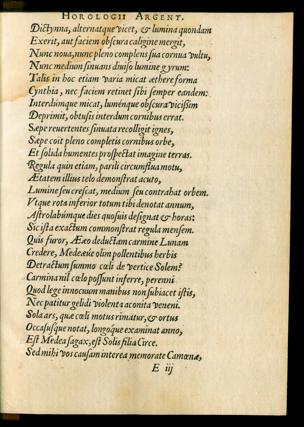 HOROLOGII ARGENT.
Dictynna, alternatque vices, & lumina quondam
Exerit, aut faciem obscura caligine mergit,
Nunc noua, nunc pleno complens sua cornua vultu,
Nunc medium sinuans diuiso lumine gyrum:
Talis in hoc etiam varia micat æthere forma
Cynthia, nec faciem retinet sibi semper eandem:
Interdúmque micat, luménque obscura vicissim
Deprimit, obtusis interdum cornibus errat.
Sæpe reuertentes sinuata recolligit ignes,
Sæpe coit pleno completis cornibus orbe,
Et solida humentes prospectat imagine terras.
Regula quin etiam, parili circumflua motu,
Ætatem illius telo demonstrat acuto,
Lumine seu crescat, medium seu contrahat orbem.
Vtque rota inferior totum tibi denotat annum,
Astrolabúmque dies quosuis designat & horas:
Sic ista exactum commonstrat regula mensem.
Quis furor, Ææo deductam carmine Lunam
Credere, Medeæue olim pollentibus herbis
Detractum summo cœli de vertice Solem?
Carmina nil cœlo possunt inferre, perenni
Quod lege innocuum manibus non subiacet istis,
Nec patitur gelidi violenta aconita veneni.
Sola ars, quæ cœli motus rimatur, & ortus
Occasusque notat, longóque examinat anno,
Est Medea sagax, est Solis filia Circe.
Sed mihi vos causam interea memorate Camœnæ,
E iij